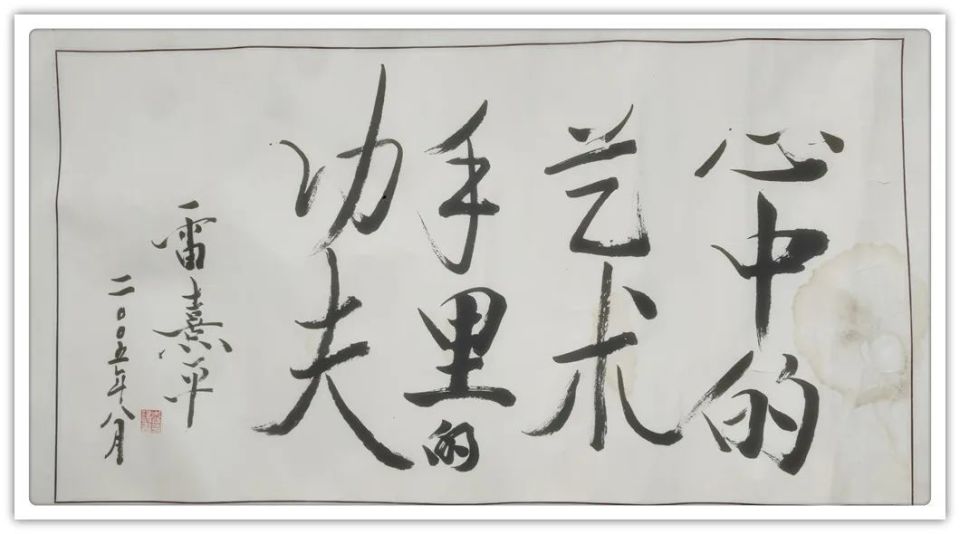 心中的
艺术
手里的
功夫
雷熹平
二００五年八月